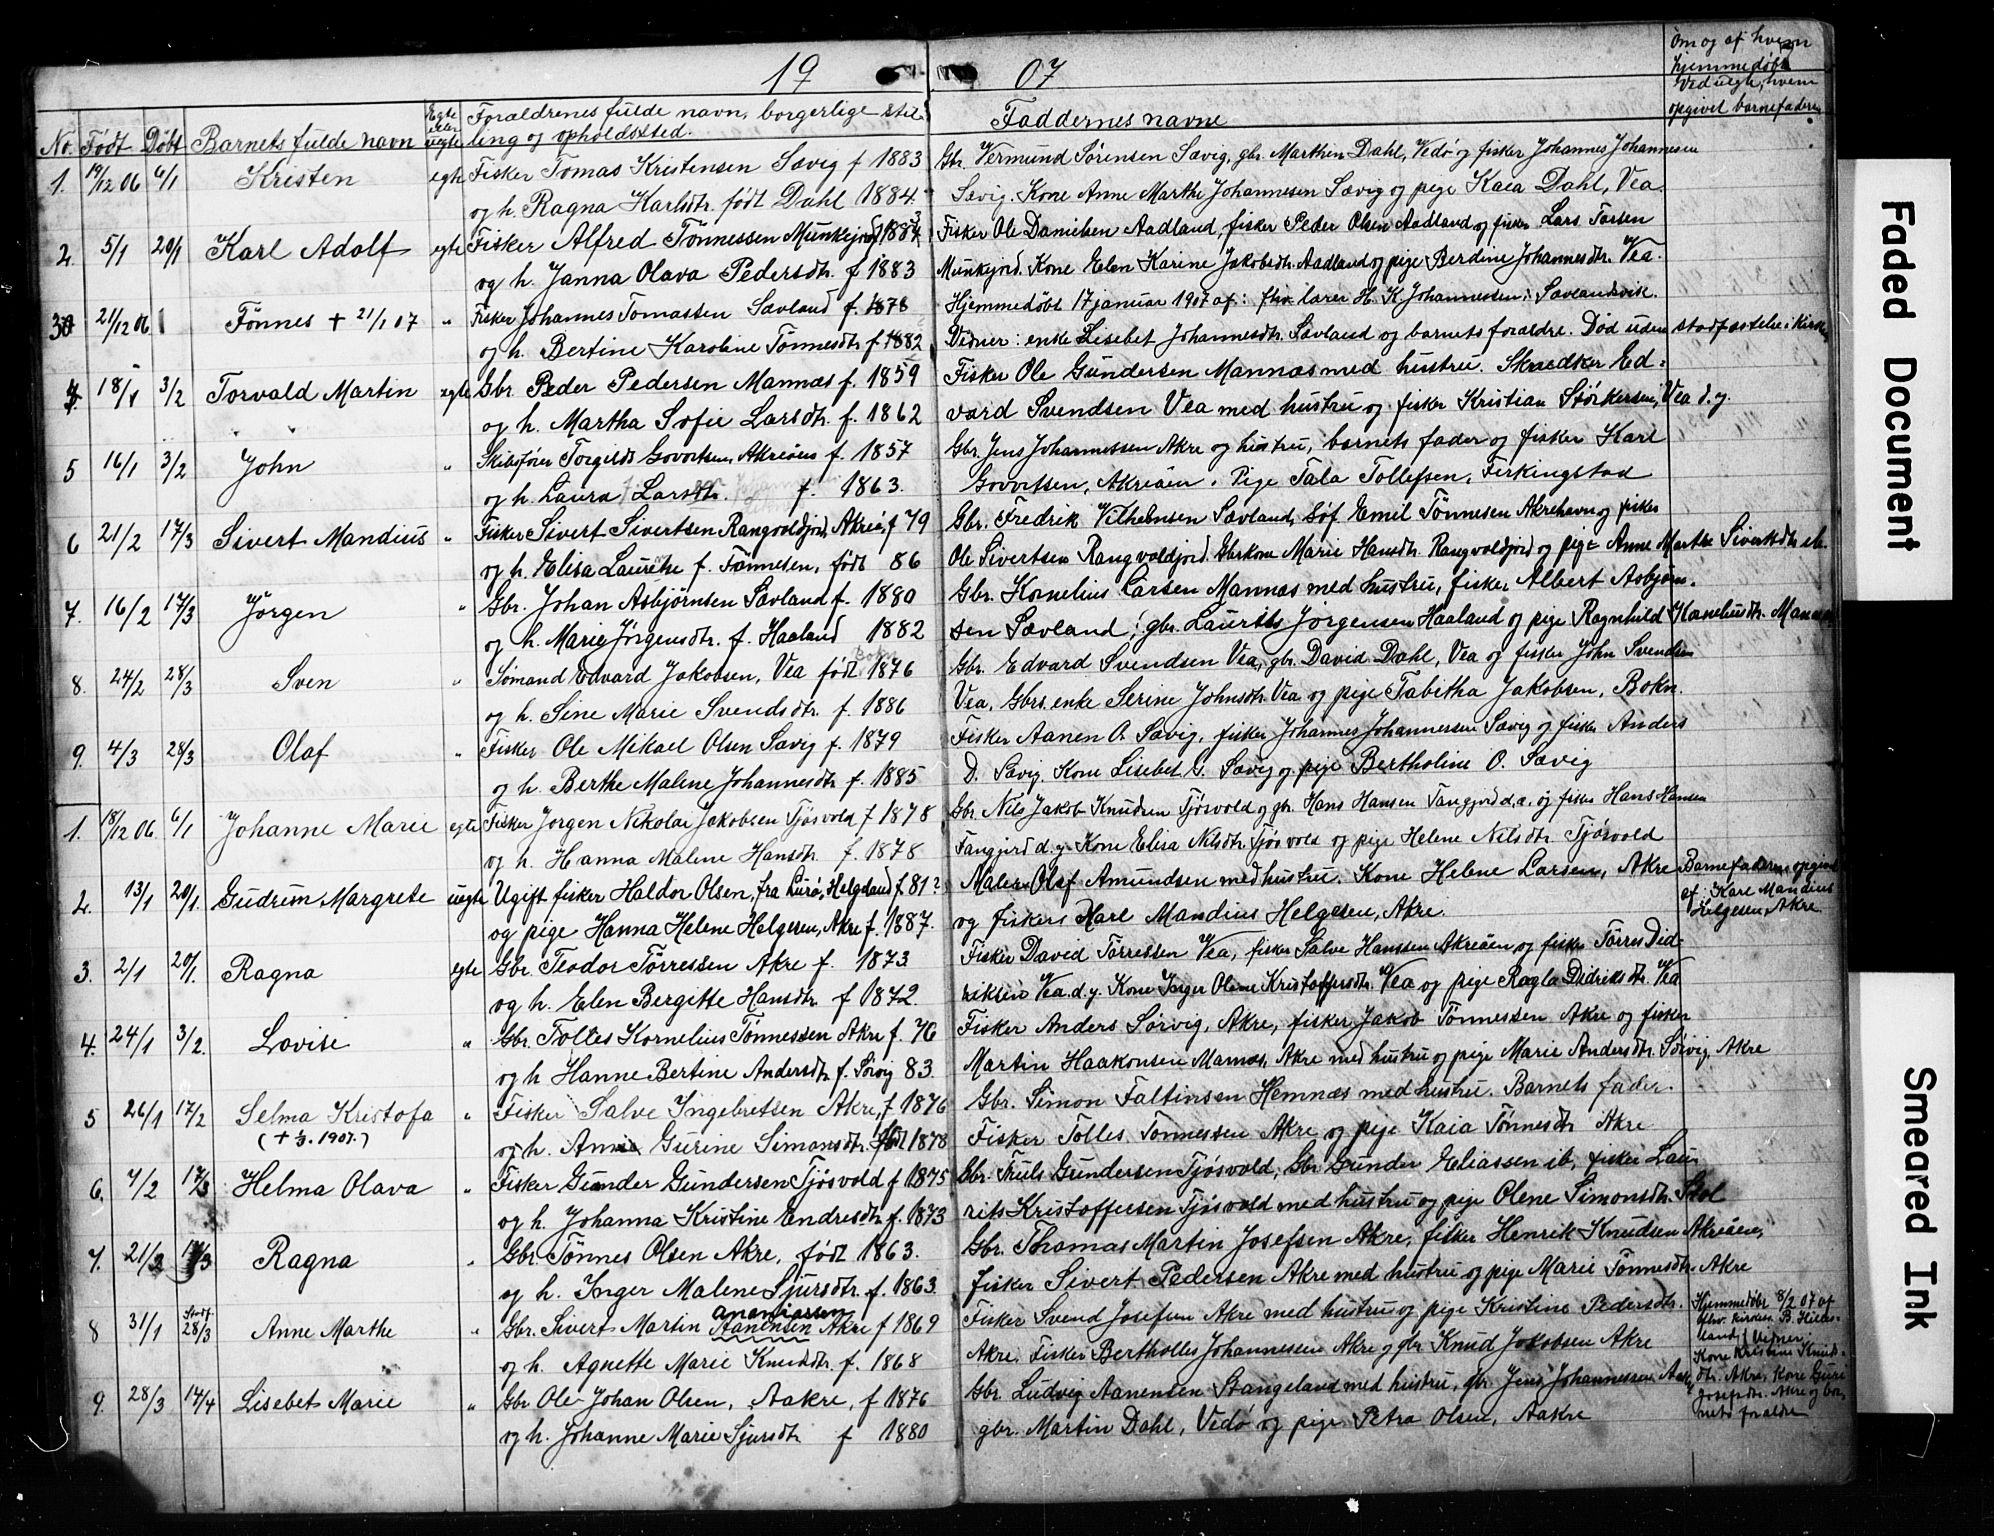 19 07
No. Født Døbt Barnets fulde navn Egte eller uegte Forældrenes fulde navn, borgerlige stilling og opholdssted. Faddernes navne Om og af hvem hjemmedøbt Ved uegte, hvem opgivet barnefaderen
1. 19/12 06 6/1 Kristen egte Fisker Tomas Kristensen Sævig f 1883 Gbr. Vermund Sørensen Sævig, gbr. Marthin Dahl, Vedø og fisker Johannes Johannesen
og h. Ragna Karlsdtr. født Dahl 1884. Sævig. Kone Anne Marthe Johannesen Sævig og pige Kaia Dahl, Vea.
2. 5/1 20/1 Karl Adolf egte Fisker Alfred Tönnessen Munkejord 1883 Fisker Ole Danielsen Aadland, fisker Peder Olsen Aadland og fisker Lars Torsen
og h. Janna Olava Pedersdtr. f 1883 Munkejord. Kone Elen Karine Jakobsdtr. Aadland og pige Berdine Johannesdtr. Vea.
3 21/12 06 Tönnes + 21/1 07 " Fisker Johannes Tomassen Sævland f. 1878 Hjemmedøbt 17 januar 1907 af: fhv. lærer H. K. Johannessen, Sævlandsvik.
og h. Bertine Karoline Tönnesdtr f 1882 Vidner: enke Lisebet Johannesdtr. Sævland og barnets forældre. Död uden stadfæstelse i kirken
4. 18/1 3/2 Torvald Martin egte Gbr. Peder Pedersen Mannæs f. 1859 Fisker Ole Gundersen Mannæs med hustru. Skrædker Ed-
og h. Martha Sofie Larsdtr. f. 1862 vard Svendsen Vea med hustru og fisker Kristian Störkersen, Vea d. y.
5 16/1 3/2 John " Skibsfører Torgilds Govertsen, Akreöen f. 1857 Gbr. Jens Johannessen Akre og hustru, barnets fader og fisker Karl
og h. Laura Larsdtr. f. 1863. Govertsen, Akreöen. Pige Tala Tollefsen, Ferkingstad
6 21/2 17/3 Sivert Mandius " Fisker Sivert Sivertsen Rangvoldjord, Akreö f 79 Gbr. Fredrik Vilhelmsen Sævland, Søf. Emil Tönnesen Akrehavn og fisker
og h. Elisa Laurthe f. Tönnesen, født 86 Ole Sivertsen Rangvoldjord. Gbrkone Marie Hansdtr. Rangvoldjord og pige Anne Marthe Sivertsdtr ib.
7. 16/2 17/3 Jörgen " Gbr. Johan Asbjörnsen Sævland f. 1880 Gbr. Kornelius Larsen Mannæs med hustru, fisker Albert Asbjörn-
og h. Marie Jörgensdtr. f. Haaland 1882 sen Sævland, gbr. Laurits Jörgensen Haaland og pige Ragnhild Korneliusdtr. Mannæs
8. 24/2 28/3 Sven " Sömand Edvard Jakobsen, Vea født Bokn 1876 Gbr. Edvard Svendsen Vea, gbr. David Dahl, Vea og fisker John Svendsen
og h. Sine Marie Svendsdtr. f. 1886 Vea. Gbrs. enke Serine Johnsdtr. Vea og pige Tabitha Jakobsen, Bokn.
9. 4/3 28/3 Olaf " Fisker Ole Mikael Olsen Sævig f. 1879 Fisker Aanen O. Sævig, fisker Johannes Johannessen Sævig og fisker Anders
og h. Berthe Malene Johannesdtr f. 1885 D. Sævig. Kone Lisebet G. Sævig og pige Bertholine O. Sævig
1. 18/12 06. 6/1 Johanne Marie egte Fisker Jörgen Nikolai Jakobsen Tjösvold f 1878 Gbr. Nils Jakob Knudsen Tjösvold og gbr. Hans Hansen Tangjord d. æ. og fisker Hans Hansen
og h. Hanna Malene Hansdtr. f. 1878. Tangjord d. y. Kone Elisa Nilsdtr. Tjösvold og pige Helene Nilsdtr. Tjösvold
2. 13/1 20/1. Gudrun Margrete uegte Ugift fisker Haldor Olsen, fra Lurö, Helgeland f 81? Maler Olaf Amundsen med hustru. Kone Helene Larsen, Akre Barnefaderen opgivet
og pige Hanna Helene Helgesen, Akre f. 1887. og fisker Karl Mandius Helgesen, Akre. af Karl Mandius Helgesen, Akre.
3. 2/1 20/1. Ragna egte Gbr. Teodor Törressen Akre f. 1873 Fisker David Törressen Vea, fisker Salve Hanssen Akreöen og fisker Törres Did-
og h. Elen Bergitte Hansdtr. f 1872. riksen Vea d. y. Kone Inger Olene Kristoffersdtr. Vea og pige Ragla Didriksdtr. Vea
4. 24/1 3/2. Lovise " Gbr. Tolles Kornelius Tönnessen Akre f. 76 Fisker Anders Sörvig, Akre, fisker Jakob Tönnessen Akre og fisker
og h Hanne Bertine Andersdtr. f. Sörvig 83. Martin Haakonsen Mannæs, Akre med hustru og pige Marie Andersdtr. Sörvig, Akre
5 26/1 17/2 Selma Kristofa " Fisker Salve Ingebretsen Akre, f 1876 Gbr. Simon Faltinsen Hemnæs med hustru. Barnets fader.
(+ 1/3. 1907.) og h. Anna Gurine Simonsdtr. født 1878 Fisker Tolles Tönnessen Akre og pige Kaia Tönnesdtr Akre
6. 7/2 17/3 Helma Olava " Fisker Gunder Gundersen Tjösvold f 1875 Gbr. Truls Gundersen Tjösvold, Gbr. Gunder Eliassen ib, fisker Lau-
og h. Johanna Kristine Endresdtr. f. 1873 rits Kristoffersen Tjösvold med hustru og pige Olene Simonsdtr. Stol
7. 21/2 17/3 Ragna " Gbr. Tönnes Olsen Akre, født 1863. Gbr. Thomas Martin Josefsen Akre, fisker Henrik Knudsen Akreöen,
og h. Inger Malene Sjursdtr. f. 1863. fisker Sivert Pedersen Akre med hustru og pige Marie Tönnesdtr. Akre
8 31/1 Stadf. 28/3 Anne Marthe " Gbr. Sivert Martin Aanensen Ananiassen Akre f 1869 Fisker Svend Josefsen Akre med hustru og pige Kristine Pedersdtr. Hjemmedöbt 8/2 07 af
og h. Agnethe Marie Knudsdtr. f. 1868 Akre. Fisker Bertholles Johannessen Akre og gbr. Knud Jakobsen Akre fhv. kirkes. B. Hilles-land, Vidner: Kone Kristine Knuds-
9. 28/3 14/4 Lisebet Marie " Gbr Ole Johan Olsen, Aakre, f 1876 Gbr. Ludvig Aanensen Stangeland med hustru, gbr. Jens Johannessen Aakre dtr. Akre, Kone Guri
og h. Johanne Marie Sjursdtr f 1880 gbr. Martin Dahl, Vedö og pige Petra Olsen, Aakre Josefsdtr. Akre og bar-nets forældre
Faded Document
Smeared Ink